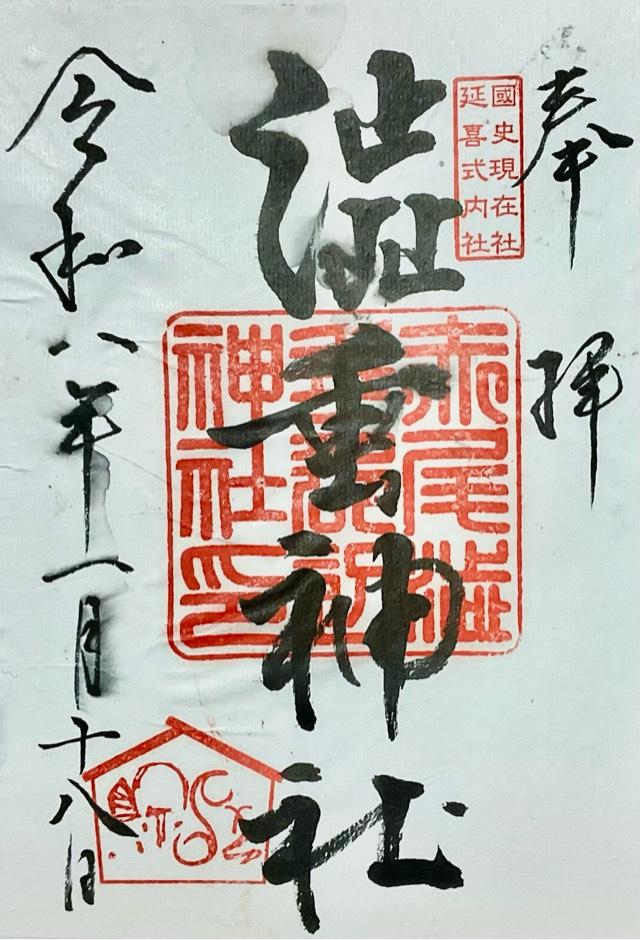 奉拝
國史現在社
延喜式内社
澁垂神社
赤尾澁
神社印
令和八年一月十八日